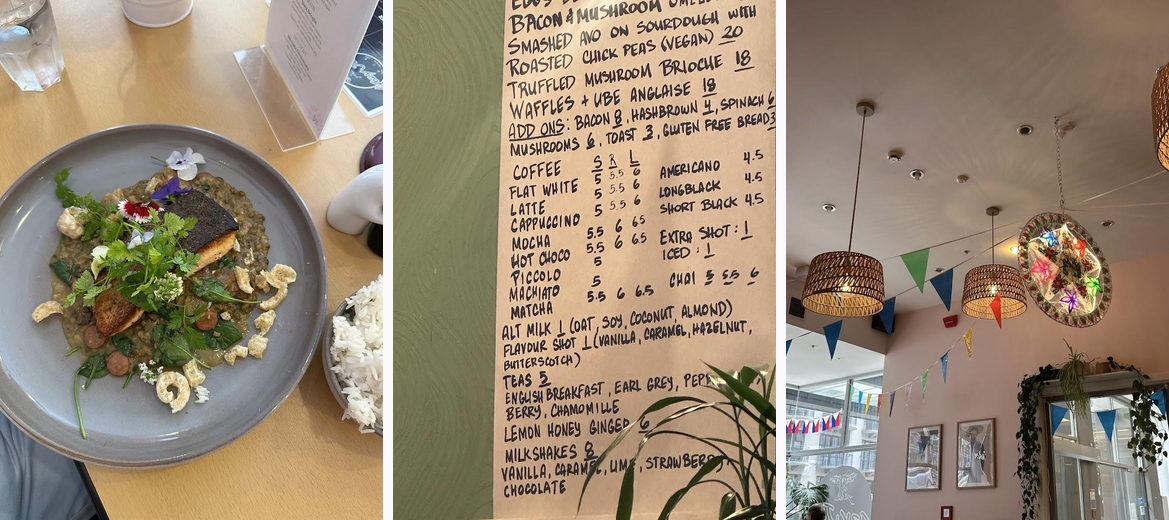 BACON & MUSHROOM
SMASHED AVO ON SOURDOUGH WITH
ROASTED CHICK PEAS (VEGAN) 20
TRUFFLED MUSHROOM BRIOCHE 18
WAFFLES + UBE ANGLAISE 18
ADD ONS: BACON 8, HASHBROWN 4, SPINACH 6
MUSHROOMS 6, TOAST 3, GLUTEN FREE BREAD 3
COFFEE S R L
FLAT WHITE 5 5.5 6
LATTE 5 5.5 6
CAPPUCCINO 5 5.5 6
MOCHA 5.5 6 6.5
HOT CHOCO 5.5 6 6.5
PICCOLO 5
MACHIATO 5
MATCHA 5.5 6 6.5
AMERICANO 4.5
LONGBLACK 4.5
SHORT BLACK 4.5
EXTRA SHOT: 1
ICED: 1
CHAI 5 5.5 6
ALT MILK 1 (OAT, SOY, COCONUT, ALMOND)
FLAVOUR SHOT 1 (VANILLA, CARAMEL, HAZELNUT,
BUTTERSCOTCH)
TEAS 5
ENGLISH BREAKFAST, EARL GREY,
BERRY, CHAMOMILLE
LEMON HONEY GINGER 6
MILKSHAKES 8
VANILLA, CARAMEL, LIME, STRAWBERRY,
CHOCOLATE